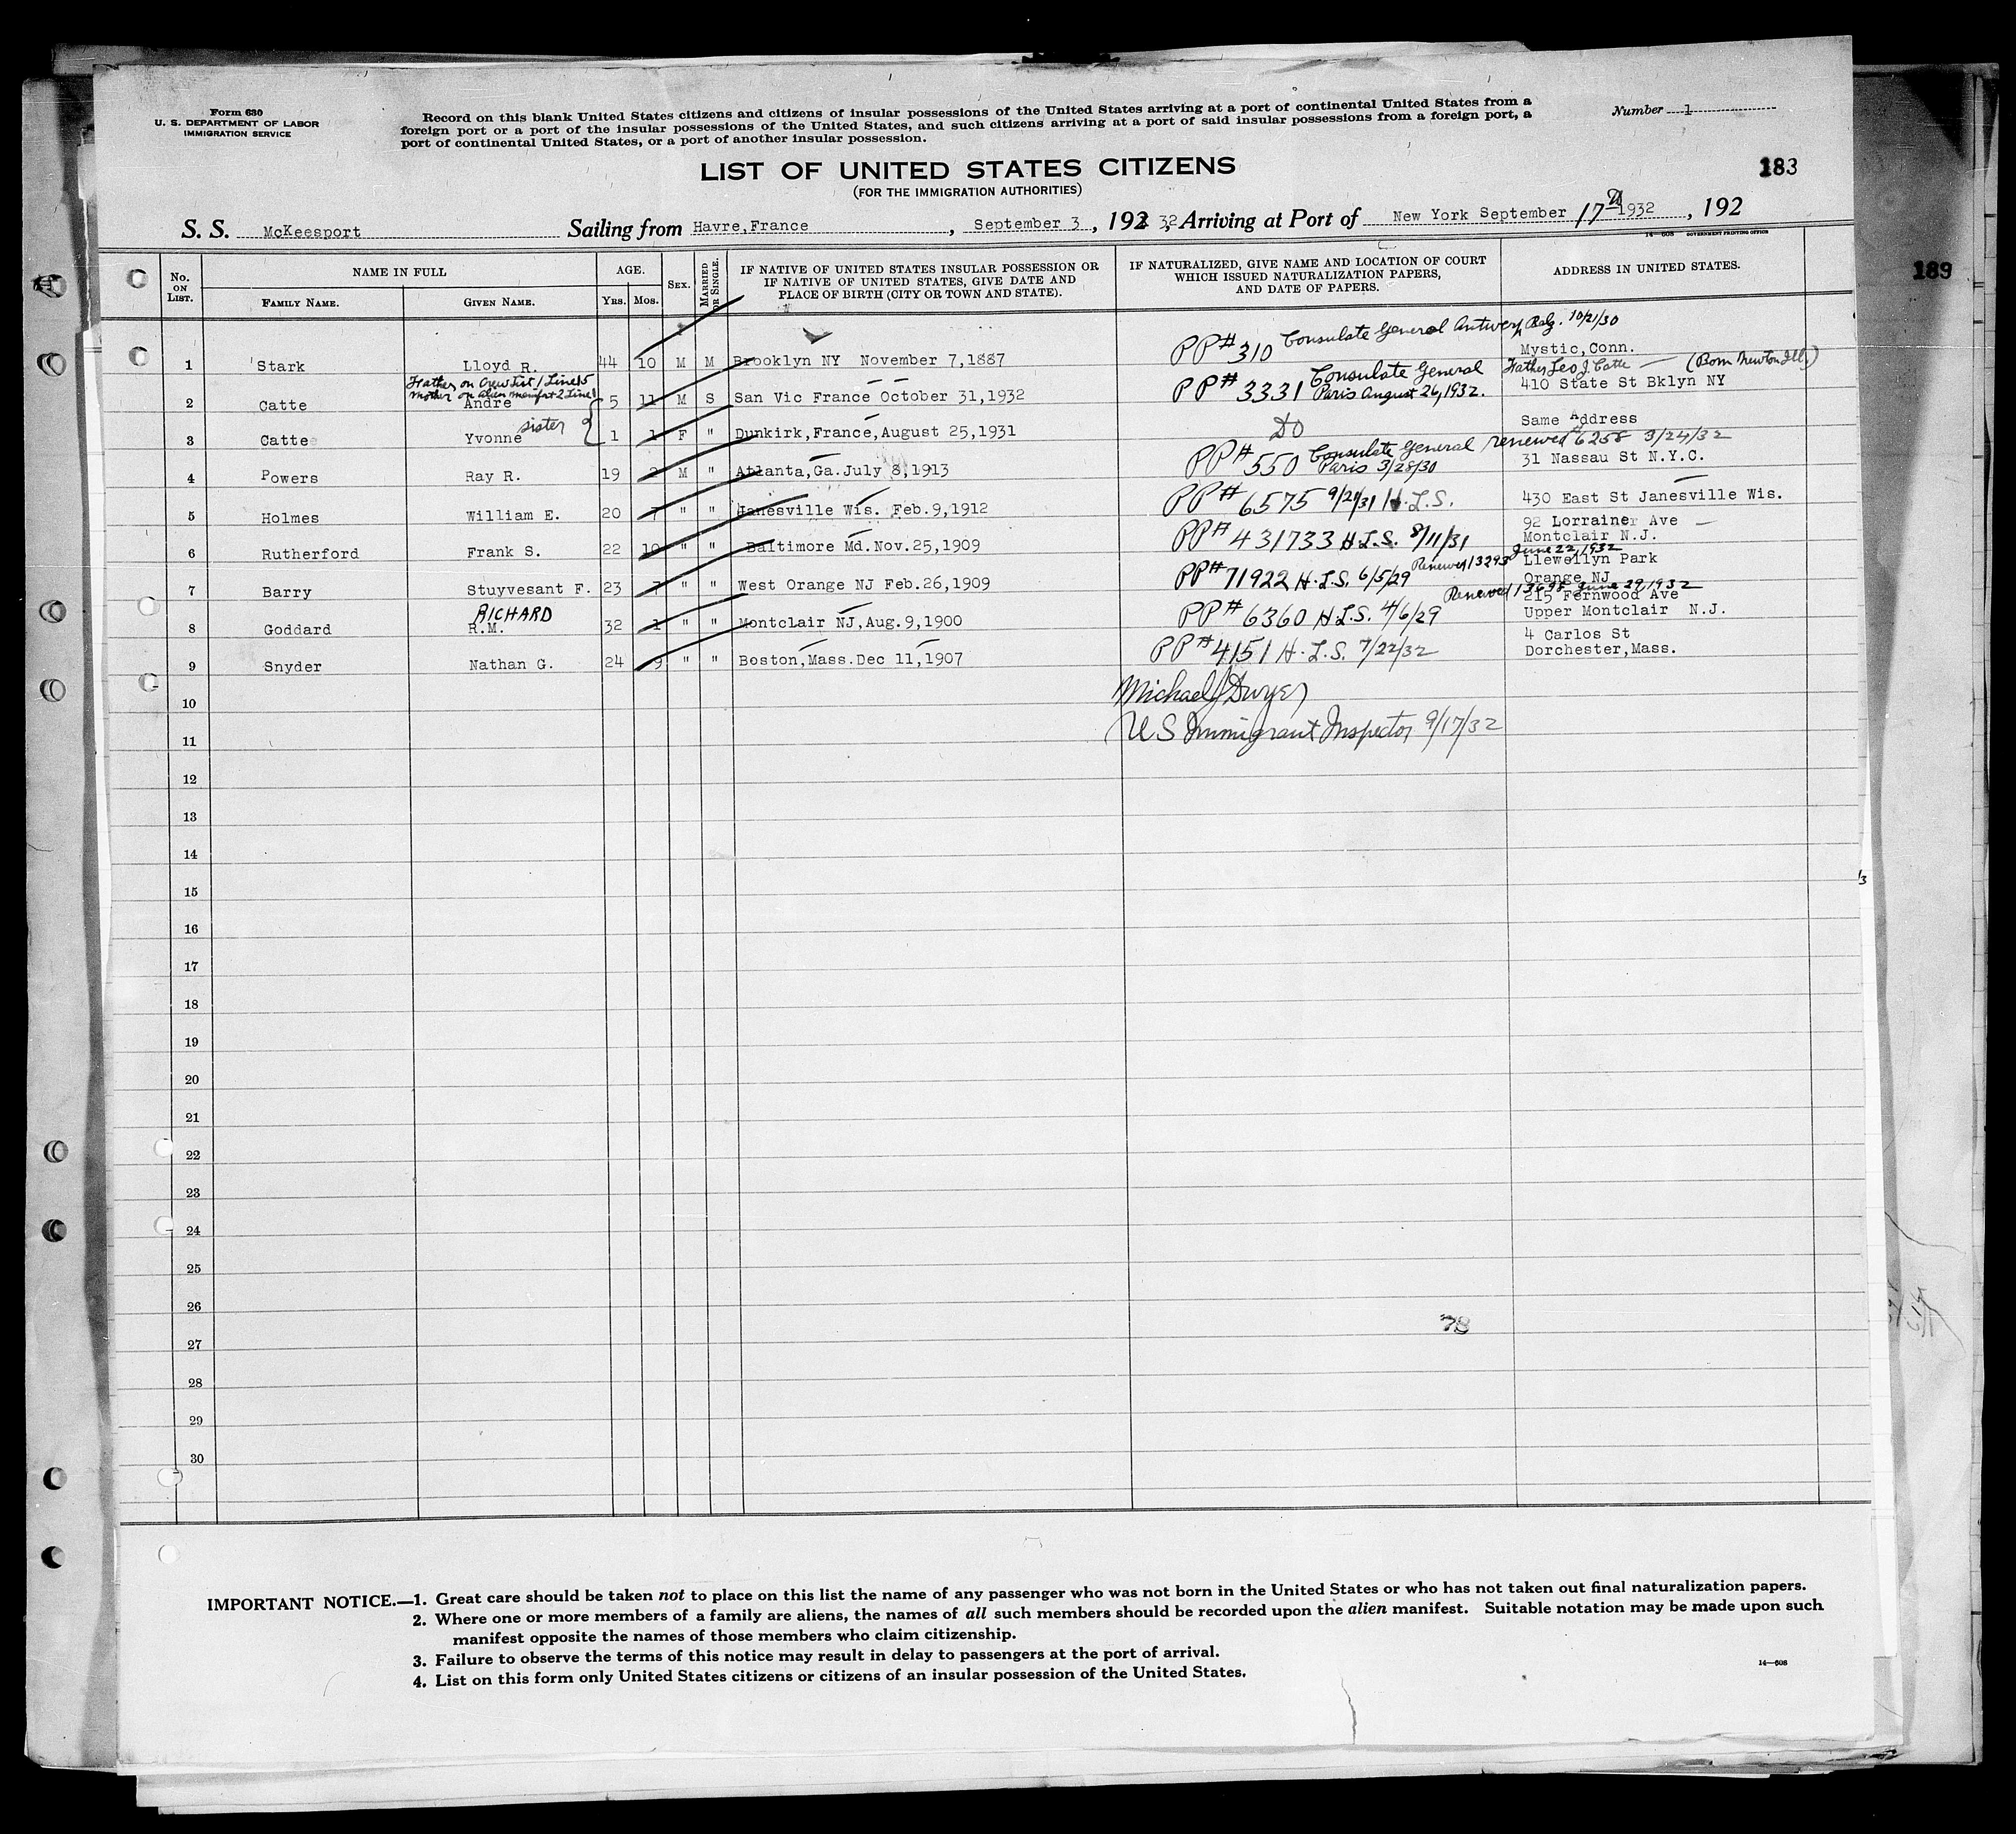 Form 630
U. S. DEPARTMENT OF LABOR
IMMIGRATION SERVICE
Record on this blank United States citizens and citizens of insular possessions of the United States arriving at a port of continental United States from a
foreign port or a port of the insular possessions of the United States, and such citizens arriving at a port of said insular possessions from a foreign port, a
port of continental United States, or a port of another insular possession.
Number 1
LIST OF UNITED STATES CITIZENS
(FOR THE IMMIGRATION AUTHORITIES)
183
S. S. McKeesport Sailing from Havre, France, September 3, 192 32, Arriving at Port of New York September 17th 1932, 192
14—608 GOVERNMENT PRINTING OFFICE
189
No. ON LIST. NAME IN FULL AGE. SEX. MARRIED OR SINGLE. IF NATIVE OF UNITED STATES INSULAR POSSESSION OR IF NATIVE OF UNITED STATES, GIVE DATE AND PLACE OF BIRTH (CITY OR TOWN AND STATE). IF NATURALIZED, GIVE NAME AND LOCATION OF COURT WHICH ISSUED NATURALIZATION PAPERS, AND DATE OF PAPERS. ADDRESS IN UNITED STATES.
FAMILY NAME. GIVEN NAME. YRS. MOS.
1 Stark Lloyd R. 44 10 M M Brooklyn NY November 7,1887 PP# 310 Consulate General Antwerp Belg. 10/21/30 Mystic,Conn.
Father on Crew List 1 Line 15
Mother on alien manifest 2 Line 1
Father Leo J. Catte (Born Newton Ill.)
2 Catte Andre 5 11 M S San Vic France October 31,1932 PP# 3331 Consulate General Paris August 26,1932. 410 State St Bklyn NY
3 Catte Yvonne sister 1 1 F " Dunkirk,France,August 25,1931 DO Same Address
4 Powers Ray R. 19 2 M " Atlanta,Ga.July 8,1913 PP# 550 Consulate General Paris 3/28/30 renewed 6258 3/24/32 31 Nassau St N.Y.C.
5 Holmes William E. 20 7 " " Janesville Wis. Feb.9,1912 PP# 6575 9/21/31 H.L.S. 430 East St Janesville Wis.
6 Rutherford Frank S. 22 10 " " Baltimore Md.Nov.25,1909 PP# 431733 H.L.S. 8/11/31 92 Lorrainer Ave
Montclair N.J.
7 Barry Stuyvesant F. 23 7 " " West Orange NJ Feb.26,1909 PP# 71922 H.L.S. 6/5/29 Renewed 13293 June 22,1932 Llewellyn Park
Orange NJ
8 Goddard RICHARD R.M. 32 1 " " Montclair NJ,Aug.9,1900 PP# 6360 H.L.S. 4/6/29 Renewed June 29,1932 215 Fernwood Ave
Upper Montclair N.J.
9 Snyder Nathan G. 24 9 " " Boston,Mass.Dec 11,1907 PP# 4151 H.L.S. 7/22/32 4 Carlos St
Dorchester,Mass.
10 Michael J Dwyer
11 US Immigrant Inspector 9/17/32
12
13
14
15
16
17
18
19
20
21
22
23
24
25
26
78
27
28
29
30
IMPORTANT NOTICE.—1. Great care should be taken not to place on this list the name of any passenger who was not born in the United States or who has not taken out final naturalization papers.
2. Where one or more members of a family are aliens, the names of all such members should be recorded upon the alien manifest. Suitable notation may be made upon such
manifest opposite the names of those members who claim citizenship.
3. Failure to observe the terms of this notice may result in delay to passengers at the port of arrival.
4. List on this form only United States citizens or citizens of an insular possession of the United States.
14—608